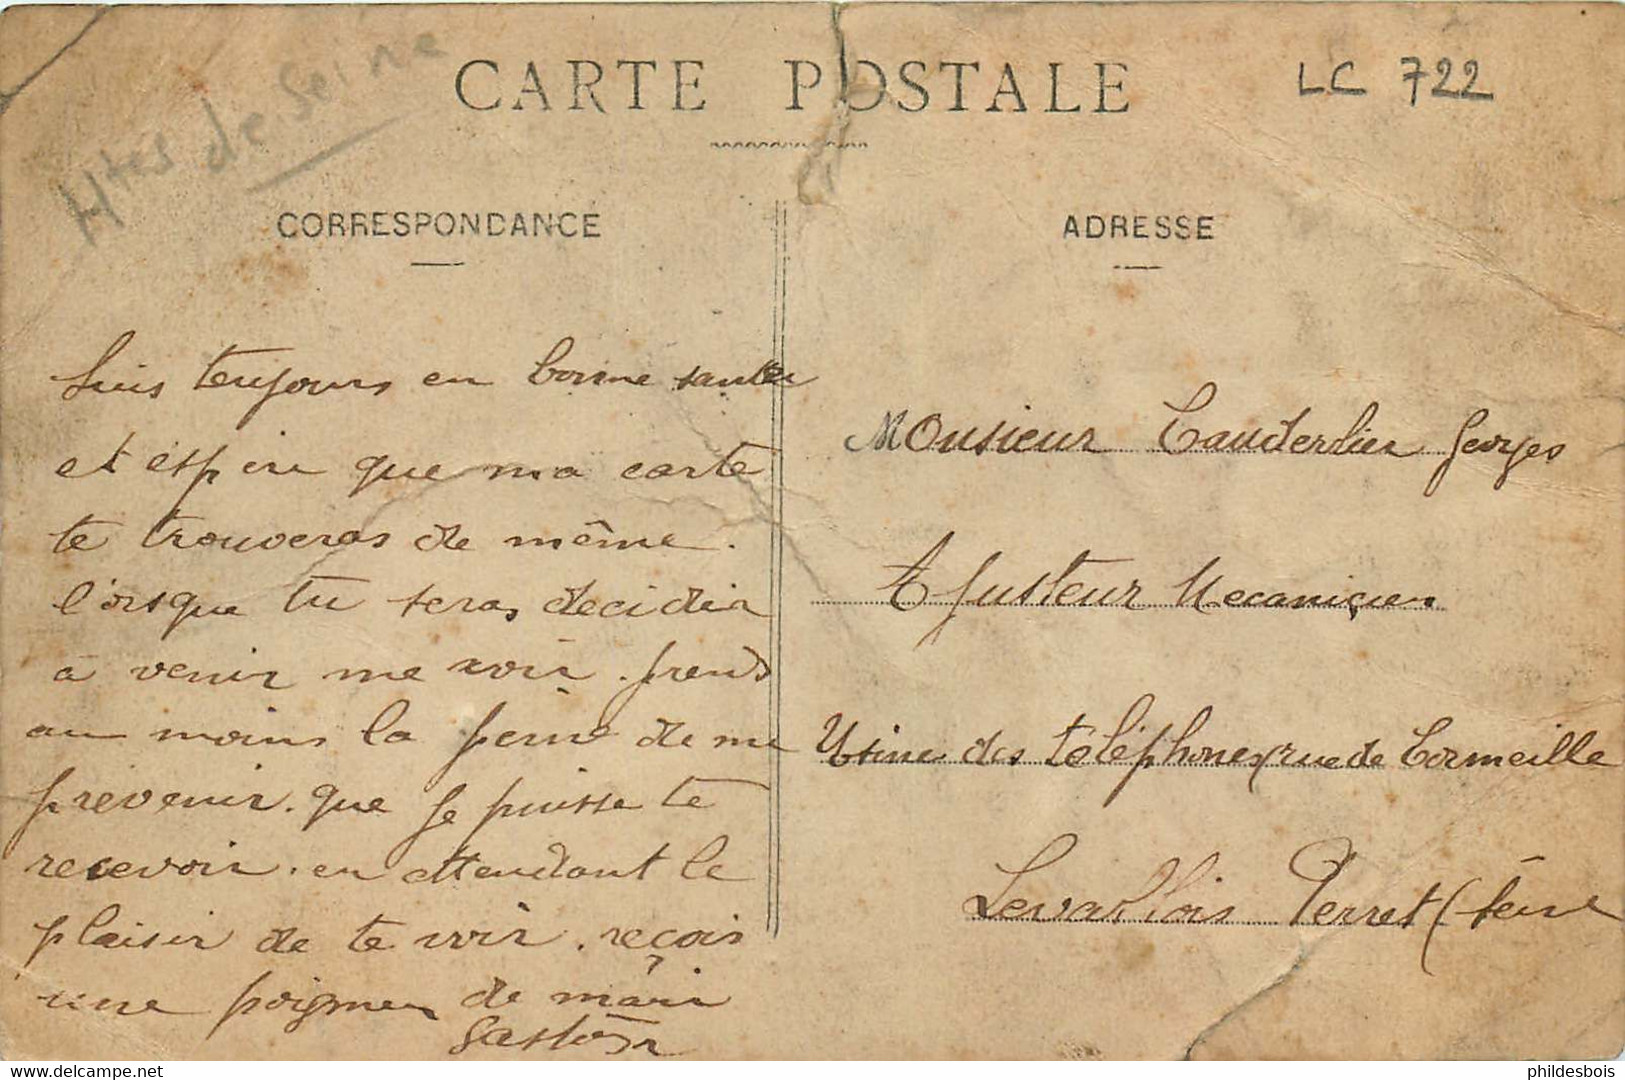 Htes de Seine
CARTE POSTALE
LC 722
CORRESPONDANCE
Suis toujours en bonne santée
et espère que ma carte
te trouveras de même.
l'orsque tu seras decider
à venir me voir. prends
au moins la peine de me
prévenir. que je puisse te
recevoir. en attendant le
plaisir de te voir. reçois
une poignee de main
Gaston
ADRESSE
Monsieur Cauderlier Georges
Ajusteur Mecanicien
Usine des téléphones (rue de Cormeille
Levallois Perret (Seine
delcampe.net
phildesbois